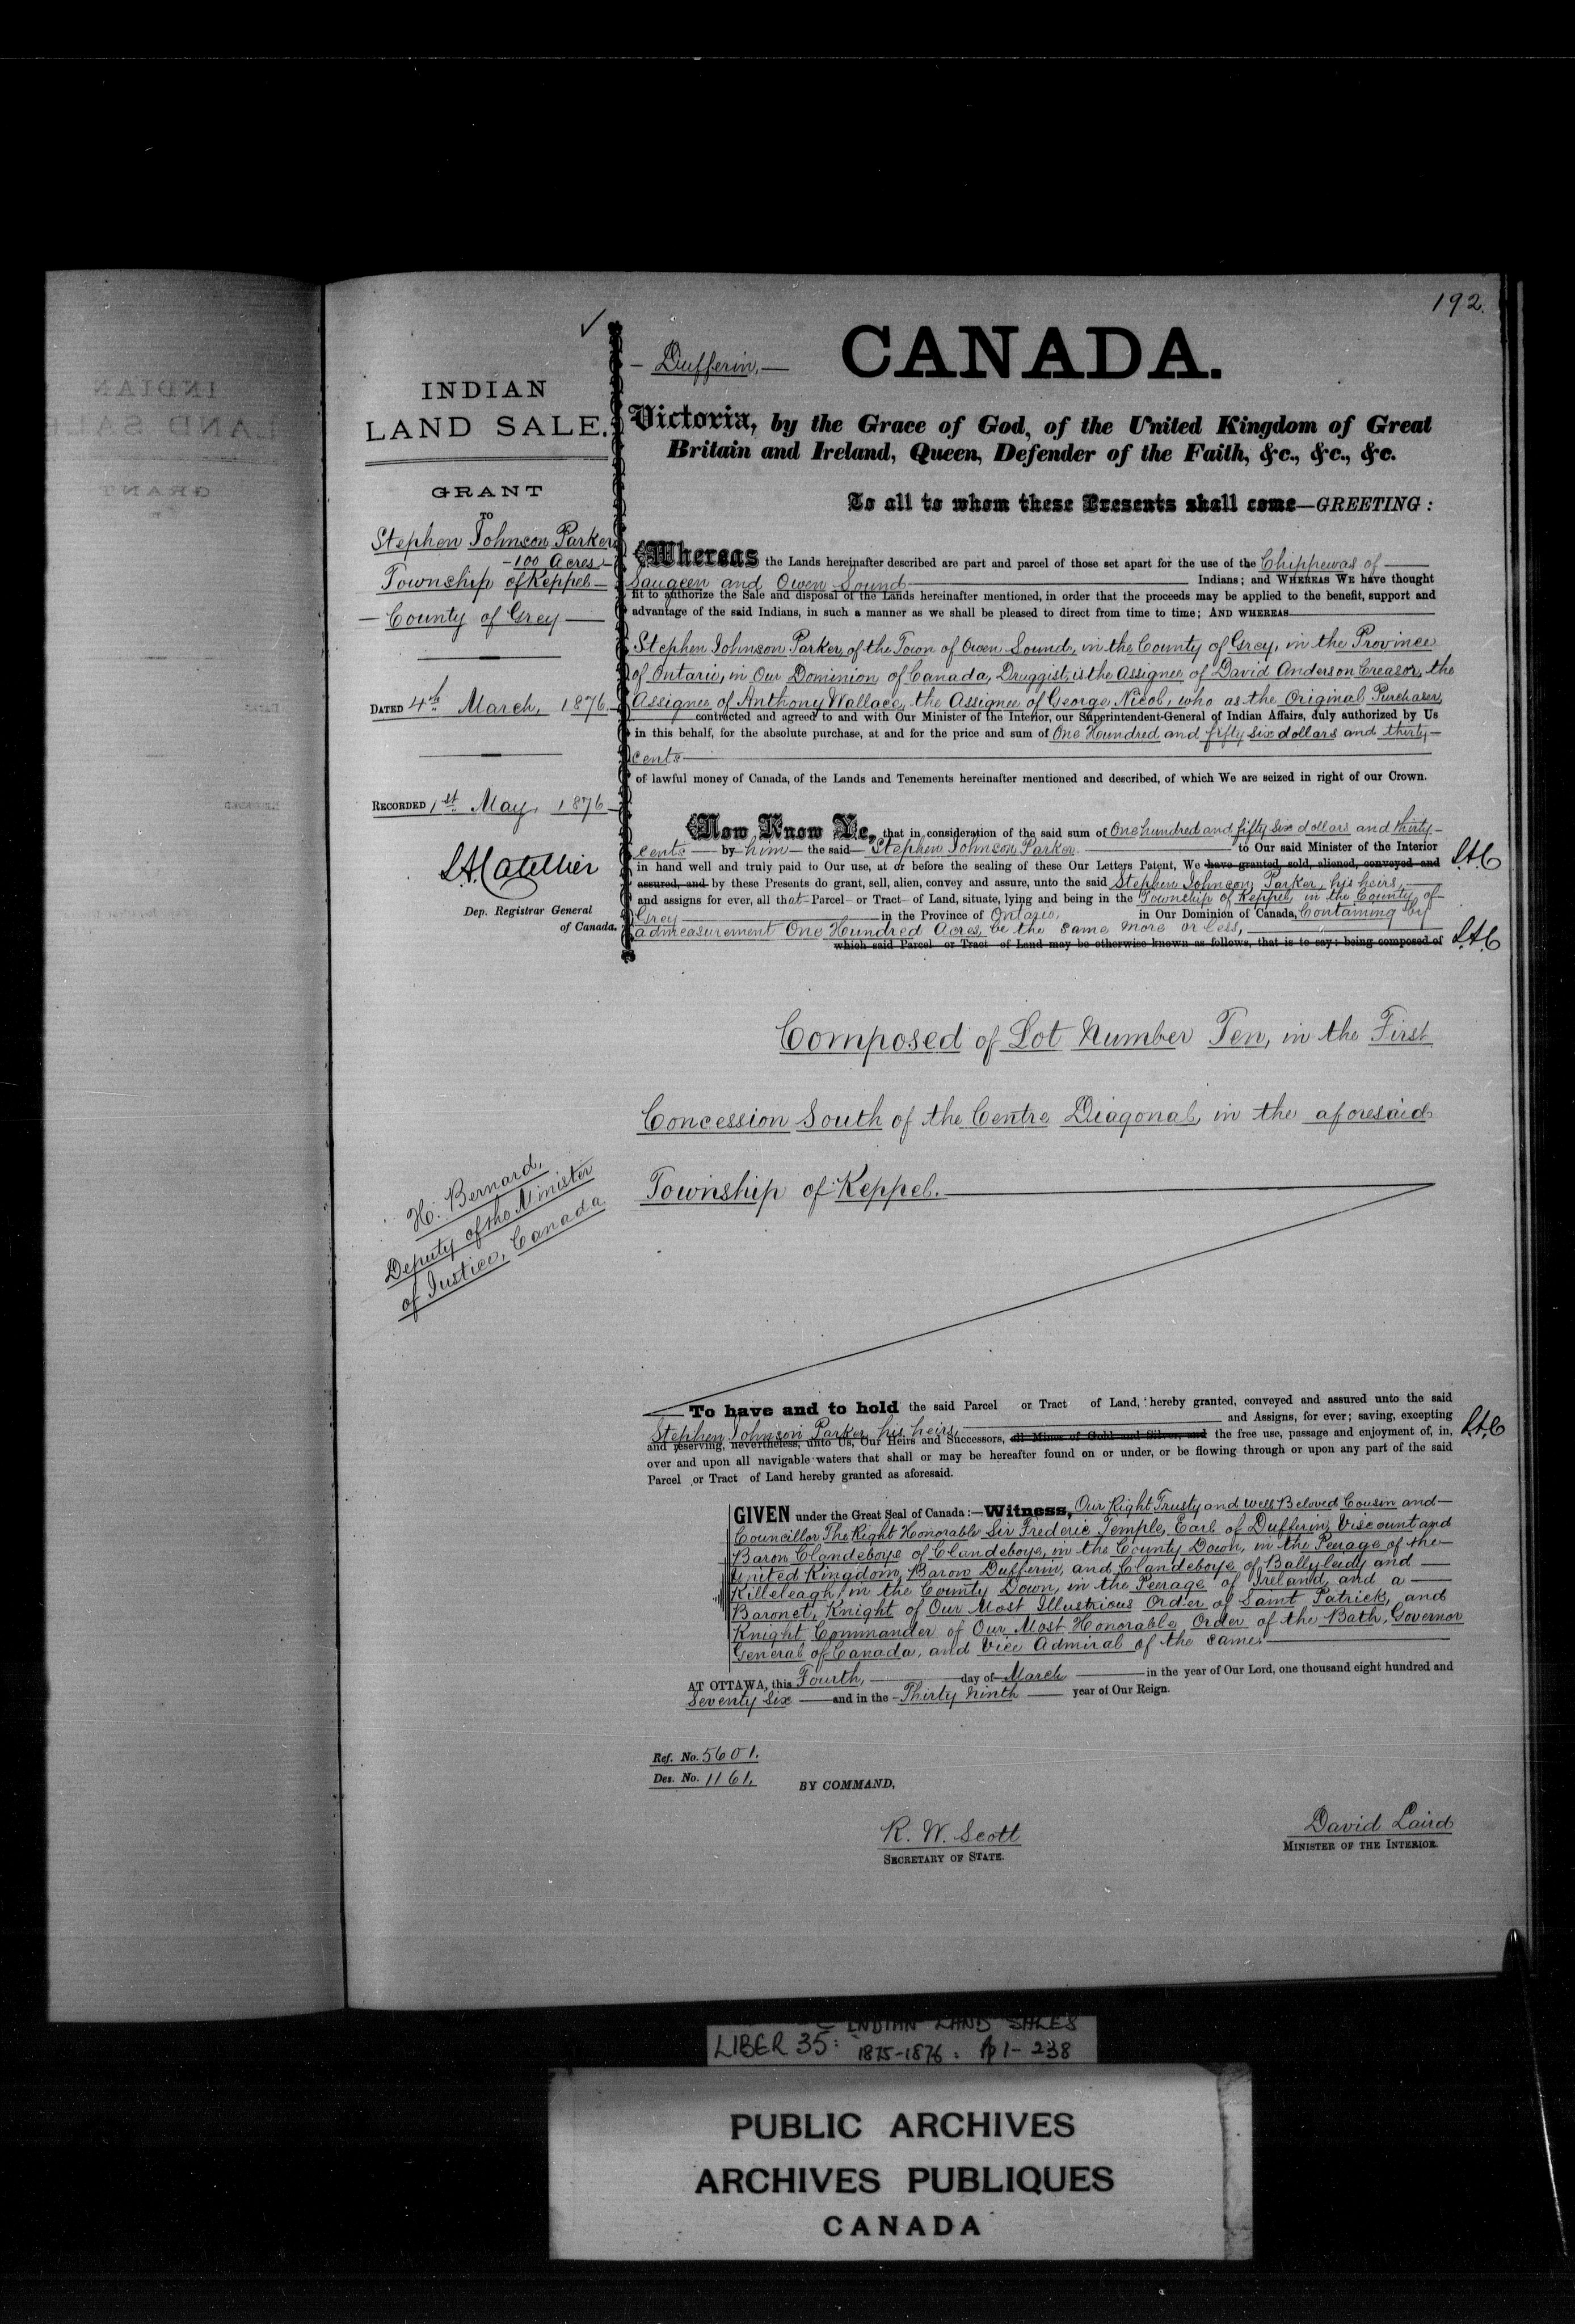 192.
INDIAN
LAND SALE.
GRANT
TO
Stephen Johnson Parker
-100 Acres-
Township of Keppel-
-County of Grey-
DATED 4th March, 1876.
RECORDED 1st May, 1876
Dep. Registrar General
of Canada.
H. Bernard,
Deputy of the Minister
of Justice, Canada
- Dufferin, -
CANADA.
Victoria, by the Grace of God, of the United Kingdom of Great
Britain and Ireland, Queen, Defender of the Faith, &c., &c., &c.
To all to whom these Presents shall come—GREETING:
Whereas the Lands hereinafter described are part and parcel of those set apart for the use of the Chippewas of
Saugeen and Owen Sound Indians; and WHEREAS WE have thought
fit to authorize the Sale and disposal of the Lands hereinafter mentioned, in order that the proceeds may be applied to the benefit, support and
advantage of the said Indians, in such a manner as we shall be pleased to direct from time to time; AND WHEREAS
Stephen Johnson Parker, of the Town of Owen Sound, in the County of Grey, in the Province
of Ontario, in Our Dominion of Canada, Druggist, is the Assignee of David Anderson Creasor, the
Assignee of Anthony Wallace, the Assignee of George Nicol, who as the Original Purchaser,
contracted and agreed to and with Our Minister of the Interior, our Superintendent-General of Indian Affairs, duly authorized by Us
in this behalf, for the absolute purchase, at and for the price and sum of One Hundred and fifty six dollars and thirty-
cents
of lawful money of Canada, of the Lands and Tenements hereinafter mentioned and described, of which We are seized in right of our Crown.
Now Know Ye, that in consideration of the said sum of One hundred and fifty six dollars and thirty-
cents by him the said Stephen Johnson Parker to Our said Minister of the Interior
in hand well and truly paid to Our use, at or before the sealing of these Our Letters Patent, We have granted, sold, aliened, conveyed and
assured, and by these Presents do grant, sell, alien, convey and assure, unto the said Stephen Johnson Parker, his heirs,
and assigns for ever, all that Parcel or Tract of Land, situate, lying and being in the Township of Keppel, in the County of
Grey in the Province of Ontario, in Our Dominion of Canada, Containing by
admeasurement One Hundred Acres, be the same more or less,
which said Parcel or Tract of Land may be otherwise known as follows, that is to say: being composed of
Composed of Lot Number Ten, in the First
Concession South of the Centre Diagonal, in the aforesaid
Township of Keppel.
To have and to hold the said Parcel or Tract of Land, hereby granted, conveyed and assured unto the said
Stephen Johnson Parker, his heirs, and Assigns, for ever; saving, excepting
and reserving, nevertheless, unto Us, Our Heirs and Successors, all Mines of Gold and Silver, and the free use, passage and enjoyment of, in,
over and upon all navigable waters that shall or may be hereafter found on or under, or be flowing through or upon any part of the said
Parcel or Tract of Land hereby granted as aforesaid.
GIVEN under the Great Seal of Canada:—Witness, Our Right Trusty and Well Beloved Cousin and-
Councillor The Right Honorable Sir Frederic Temple, Earl of Dufferin, Viscount and
Baron Clandeboye of Clandeboye, in the County Down, in the Peerage of the-
United Kingdom, Baron Dufferin, and Clandeboye of Ballyleidy and
Killeleagh, in the County Down, in the Peerage of Ireland, and a
Baronet, Knight of Our Most Illustrious Order of Saint Patrick, and
Knight Commander of Our Most Honorable Order of the Bath, Governor
General of Canada, and Vice Admiral of the same.
AT OTTAWA, this Fourth, day of March in the year of Our Lord, one thousand eight hundred and
Seventy Six and in the Thirty Ninth year of Our Reign.
Ref. No. 5601.
Des. No. 1161.
BY COMMAND,
R. W. Scott
SECRETARY OF STATE.
David Laird
MINISTER OF THE INTERIOR.
INDIAN LAND SALES
LIBER 35: 1875-1876: pp 1-238
PUBLIC ARCHIVES
ARCHIVES PUBLIQUES
CANADA